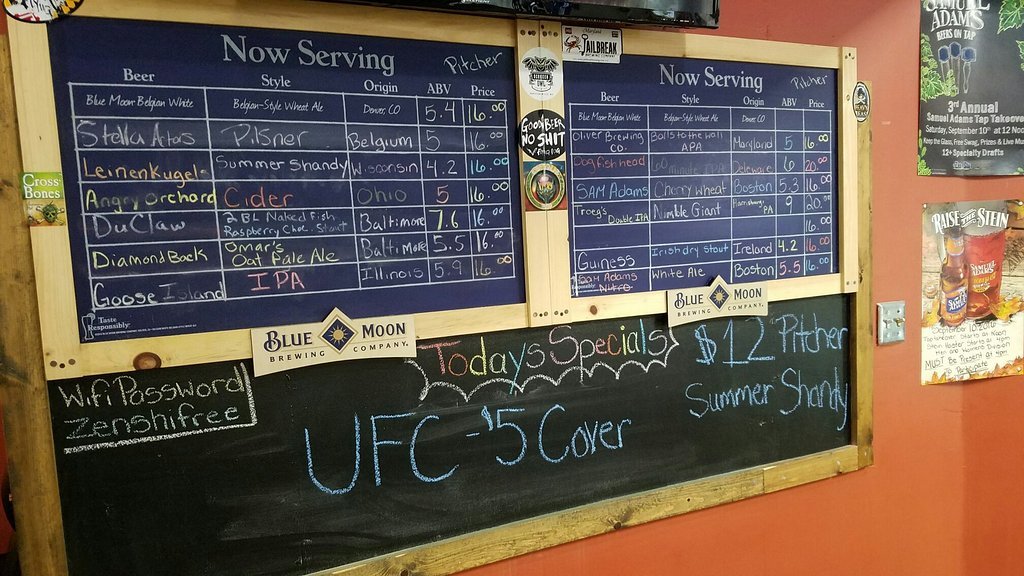 Now Serving
Pitcher
Beer Style Origin ABV Price
Blue Moon Belgian White Belgian-Style Wheat Ale Denver, CO 5.4 16.00
Stella Atos Pilsner Belgium 5 16.00
Leinenkugel's Summer Shandy Wisconsin 4.2 16.00
Angry Orchard Cider Ohio 5 16.00
DuClaw 2 BL Naked Fish Baltimore 7.6 16.00
Raspberry Choc. Stout
DiamondBack Omar's Baltimore 5.5 16.00
Oat Pale Ale
Goose Island IPA Illinois 5.9 16.00
Taste
Responsibly
Now Serving
Pitcher
Beer Style Origin ABV Price
Blue Moon Belgian White Belgian-Style Wheat Ale Denver, CO
Oliver Brewing Balls to the wall Maryland 5 16.00
CO. APA
Dogfishhead 60 minute Delaware 6 20.00
SAM Adams Cherry Wheat Boston 5.3 16.00
Troeg's Double IPA Nimble Giant Harrisburg, PA 9 20.00
Guiness Irish dry stout Ireland 4.2 16.00
Sam Adams White Ale Boston 5.5 16.00
Nitro
Cross
Bones
Maryland
JAILBREAK
GOOD BEER
NO SHIT
BLUE MOON
BREWING COMPANY.
BLUE MOON
BREWING COMPANY.
Todays Specials
$12 Pitcher
Summer Shandy
Wifi Password
zenshifree
UFC - $5 Cover
SAMUEL
ADAMS
BEERS ON TAP
3rd Annual
Samuel Adams Tap Takeover
Saturday, September 10th at 12 Noon
Keep the Glass, Free Swag, Prizes & Live Music
12+ Specialty Drafts
RAISE THE STEIN
SAMUEL
ADAMS
Must Be Present at